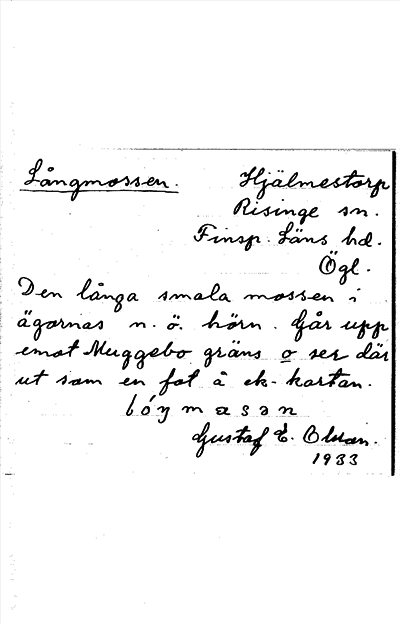 Långmossen. Hjälmestorp
Risinge sn.
Finsp. Läns hd.
Ögl.
Den långa smala mossen i
ägornas n. ö. hörn. Går upp
emot Muggebo gräns o ser där
ut som en fot å ek-kartan.
Gustaf E. Olsson.
1933